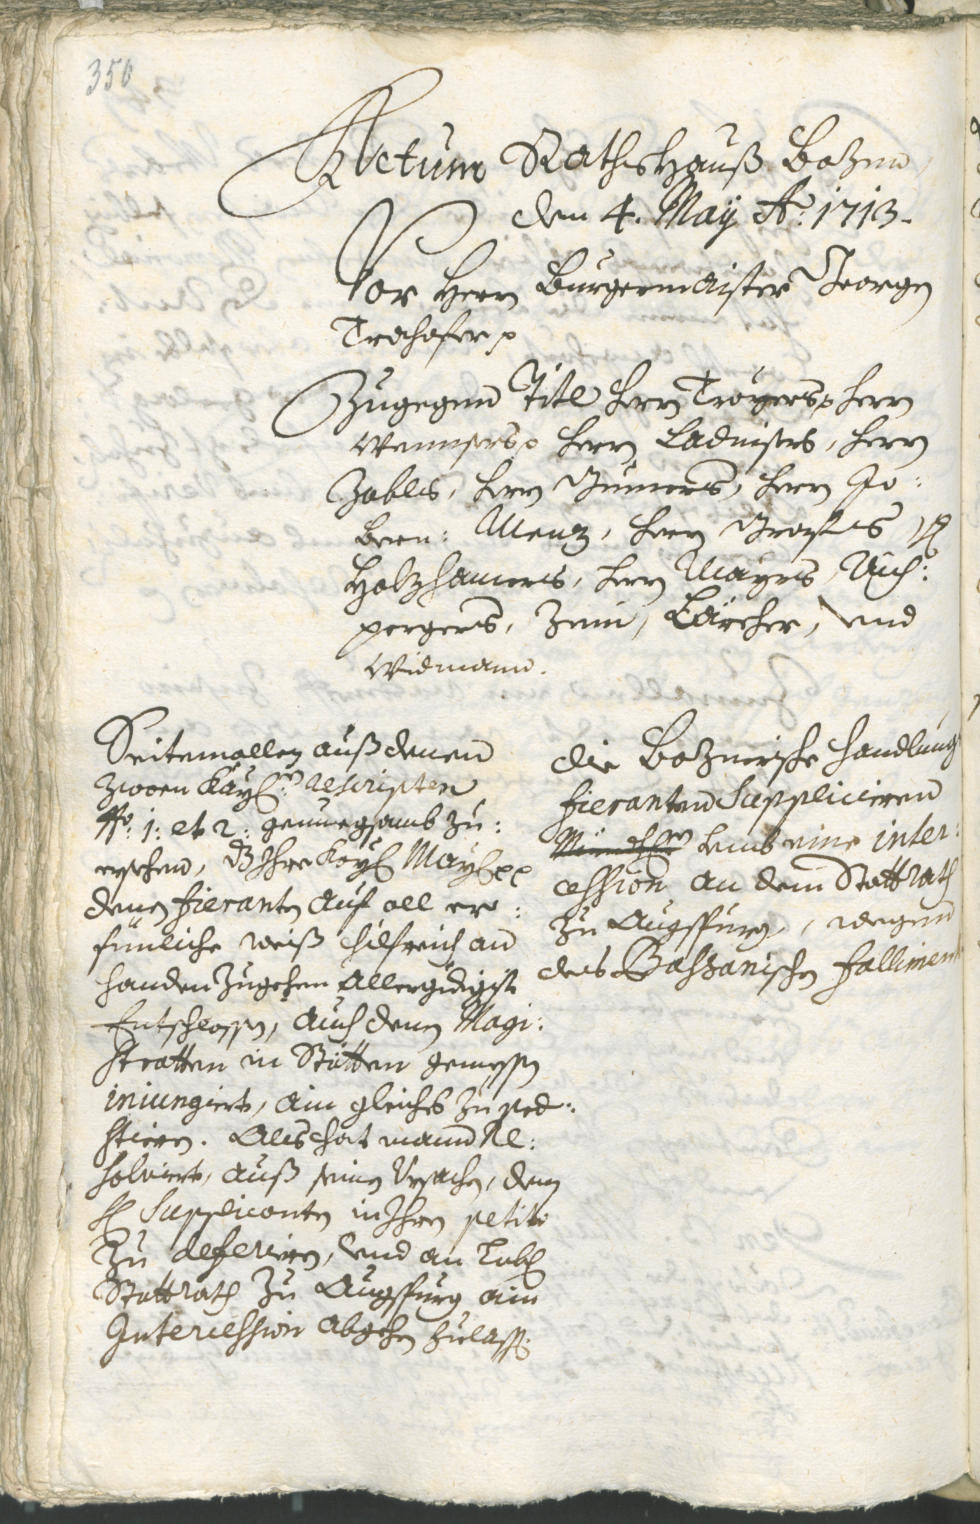 350
Actum Rathshauß Bozen
den 4. May Ao: 1713.
Vor Herrn Burgermaister Georgen
Trochofer p
Zugegen Titl Herrn Troyers p Herrn
Wennsers p Herrn Ladniers, Herrn
Zables, Herrn Gumers, Herrn Jo:
Bern: Menz, Herrn Grafls
Holzhamers, Herrn Mayrs, Aich:
pergers, Zeni, Larcher, und
Widmann.
Die Boznerische Handlung
Fieranten Suppliciren
umb eine inter:
cession an dem Stattrath
zu Augspurg, wegen
des Bassanischen Falliment
Seitemallen auß denen
zwoen Kayl: rescripten
No: 1: et 2: genuegsamb zu:
ersehen, dz Ihre Kayl May: pp
denen Fieranten auf all er:
sünliche weiß hilfreich an
handen zugehen allergdigist
Entschlossen, auch denen Magi:
stratten in Stätten gemessen
iniungiert, ain gleiches zu præ:
stieren. Als hat mann Re:
solviert, auß seinen Ursachen, den
H Supplicanten in Ihren petito
zu deferiren, und an Lobl
Stattrath zu Augspurg ain
Intercession abgehen zulassen: